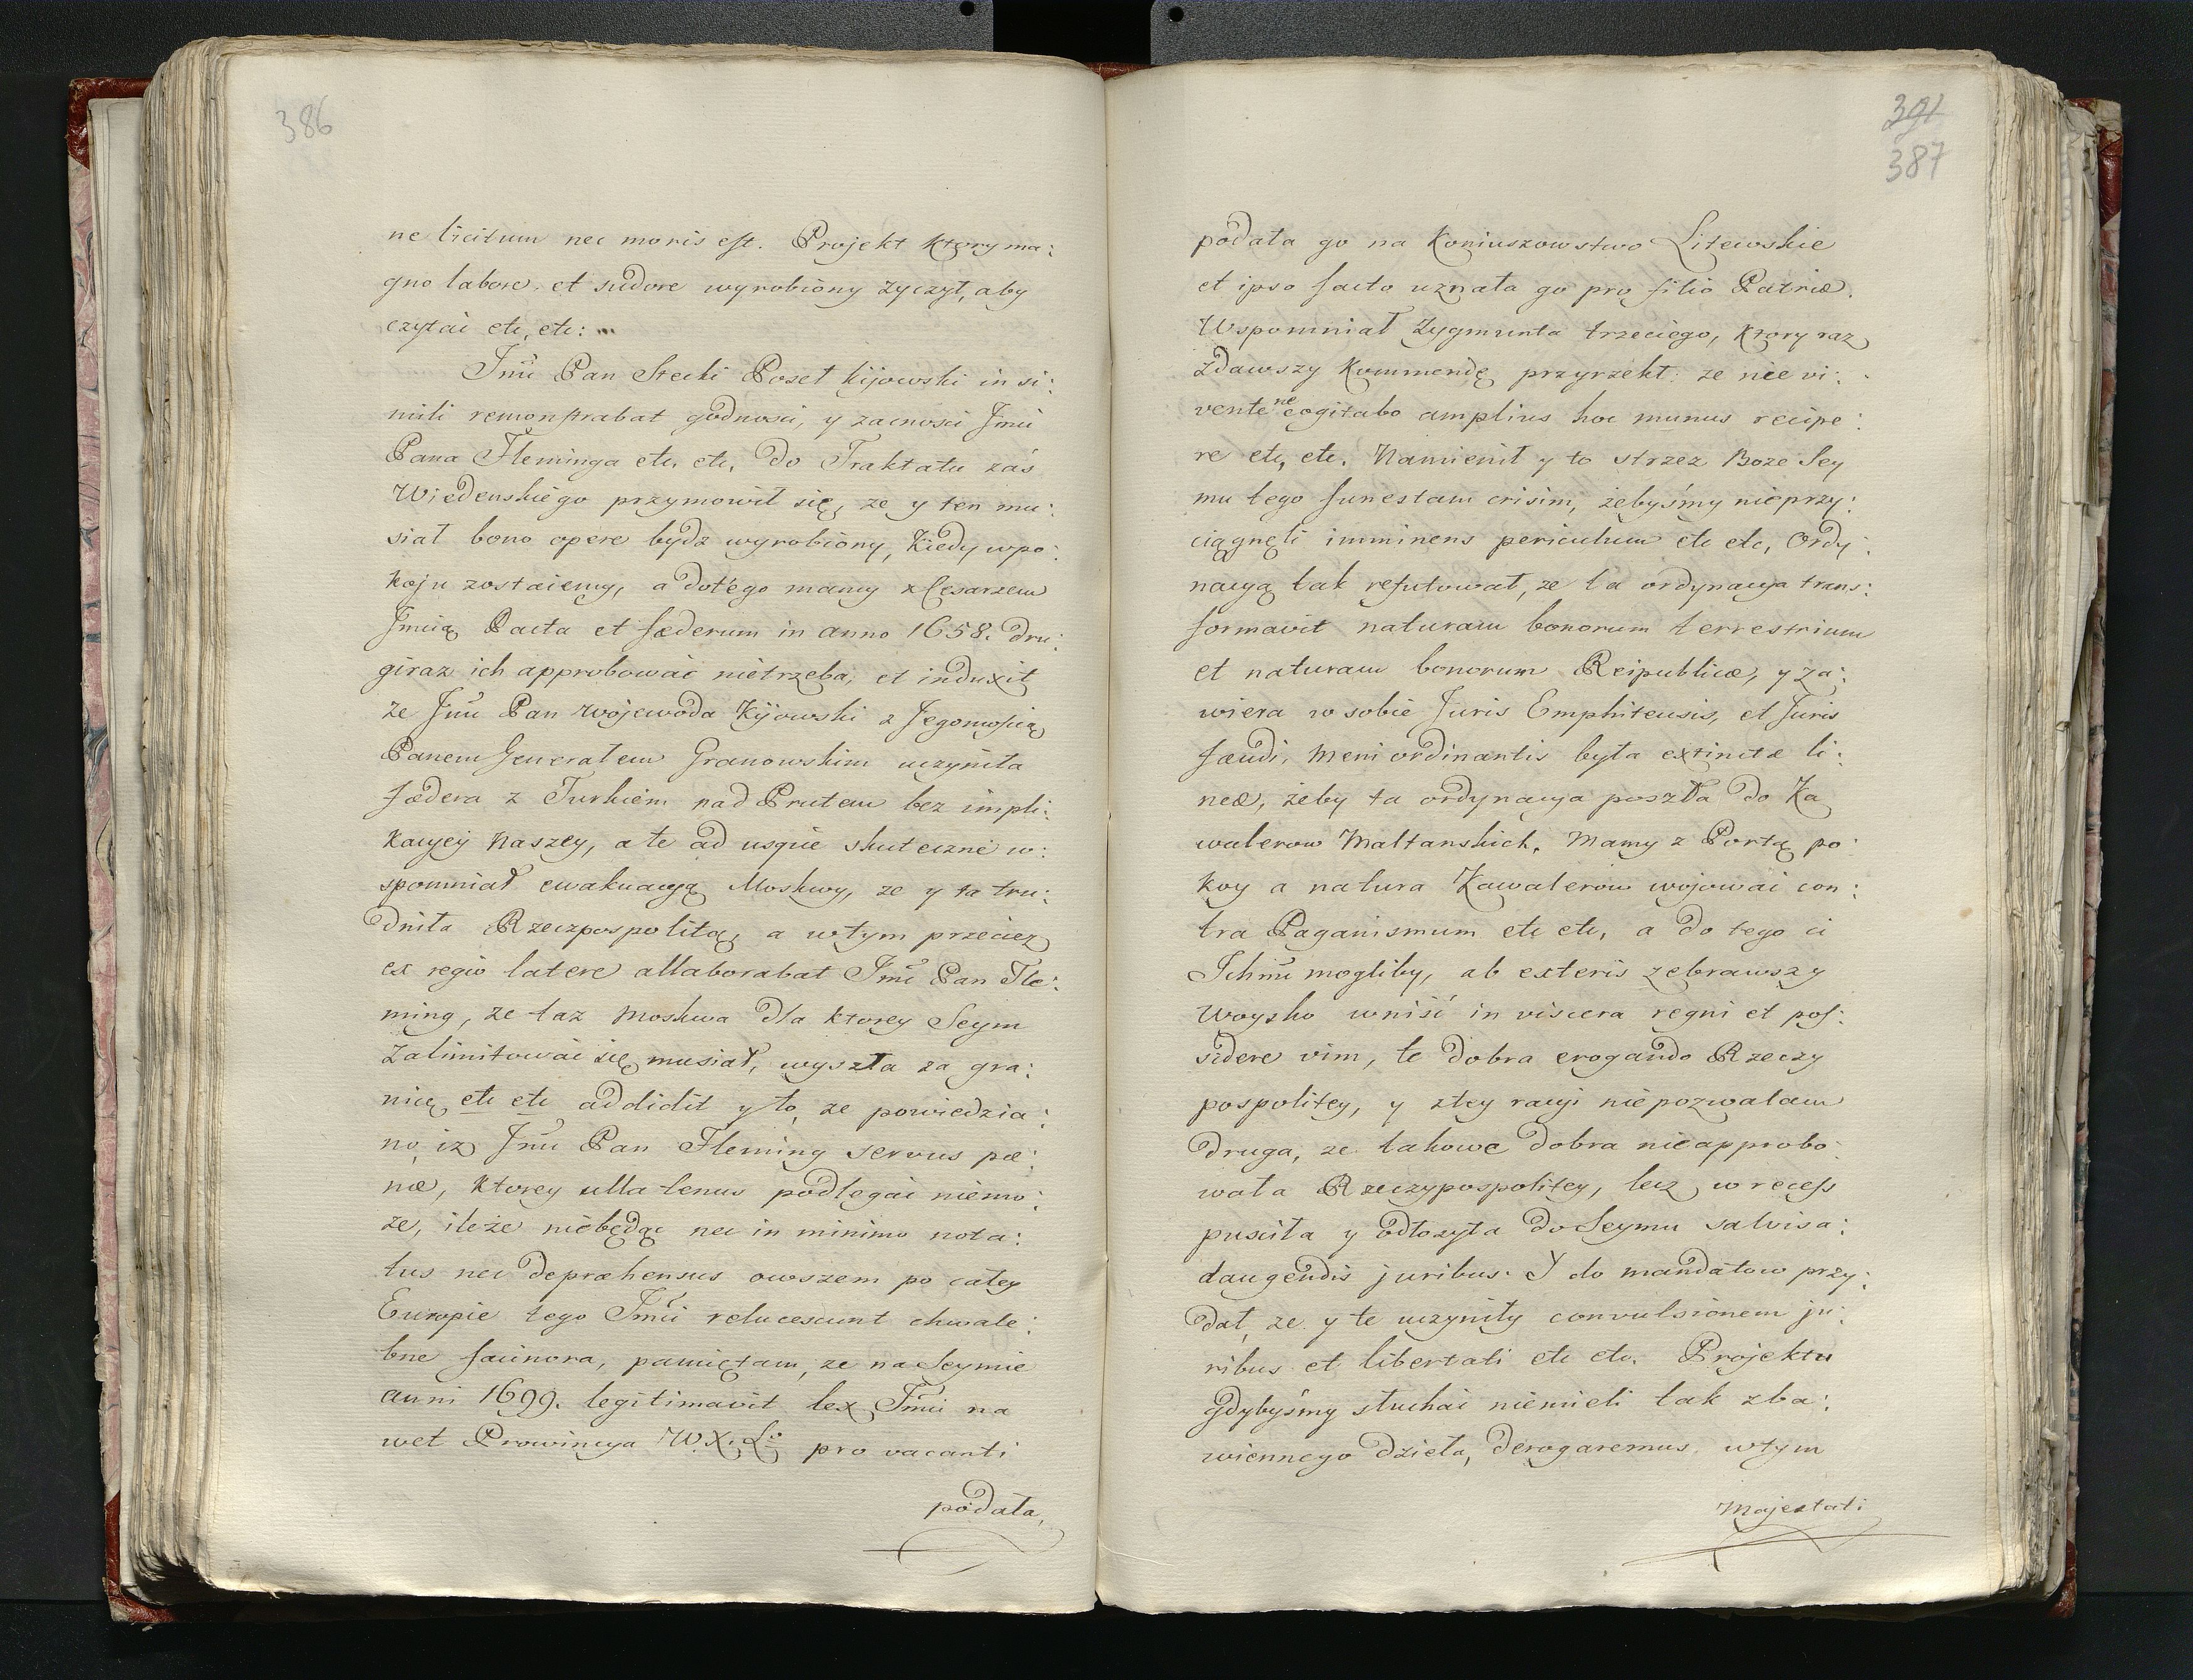 386
ne licitum nec moris est. Projekt ktory ma:
gno labore et sudore wyrobiony życzył, aby
czytać etc, etc:
Jmć Pan Stecki Poseł kijowski in si:
mili remonstrabat godnosci, y zacnosci Jmći
Pana Fleminga etc. etc. do Traktatu zaś
Wiedenskiego przymowił się, ze y ten mu:
siał bono opere bydz wyrobiony, kiedy wpo:
koju zostaiemy, a dotego mamy z Cesarzem
Jmcią Pacta et fæderum in anno 1658. dru:
giraz ich approbować nietrzeba, et induxit
że Jmć Pan wojewoda Kijowski z Jegomością
Panem Generałem Granowskim uczyniła
fædera z Turkiem nad Prutem bez impli:
kacyey Naszey, a te ad usque skuteczne w:
spomniał ewakuacyą Moskwy, ze y ta tru:
dniła Rzeczpospolitą, a wtym przeciez
ex regio latere allaborabat Jmć Pan Fle:
ming, że taz Moskwa dla ktorey Seym
Zalimitować się musiał, wyszła za gra:
nicę etc etc addidit y to, ze powiedzia:
no, iz Jmć Pan Fleming servus pæ:
næ, ktorey ulla tenus podlegać niemo:
że, ileże niebędąc nec in minimo nota:
tus nec depræhensus owszem po całey
Europie tego Jmći relucescunt chwale:
bne facinora, pamiętam, ze na Seymie
anni 1699. legitimavit lex Jmći na
wet Prowincya W.X.Lo pro vacanti
podała,
391
387
podała go na Koniuszowstwo Litewskie
et ipso facto uznała go pro filio Patriæ.
Wspomniał Zygmunta trzeciego, ktory raz
zdawszy Kommendę przyrzekł: ze nie vi:
vente ne cogitabo amplius hoc munus recipe:
re etc, etc. Namienił y to strzez Boze Sey
mu tego funestam crisim, żebyśmy nieprzy:
ciągnęli imminens periculum etc etc, Ordy:
nacyą tak refutował, ze ta ordynacya trans:
formavit naturam bonorum terrestrium
et naturam bonorum Reipublicæ, y za:
wiera w sobie Juris Emphiteusis, et Juris
fæudi, meni ordinantis była extinctæ li:
neæ, żeby ta ordynacya poszła do Ka
walerow Maltanskich. Mamy z Portą po:
koy a natura Kawalerow wojować con:
tra Paganismum etc etc, a do tego ci
Ichmć mogliby, ab exteris zebrawszy
Woysko wniść in viscera regni et pos:
sidere vim, te dobra erogando Rzeczy
pospolitey, y ztey racyi niepozwalam
druga, ze takowe dobra nieapprobo:
wała Rzeczypospolitey, lecz w recess
puściła y odłozyła do Seymu salvis a:
daugendis juribus. Y do mandatow przy:
dał, ze y te uczyniły convulsionem ju:
ribus et libertati etc etc. Projektu
gdybyśmy słuchać niemieli tak zba:
wiennego dzieła, derogaremus wtym
Majestati